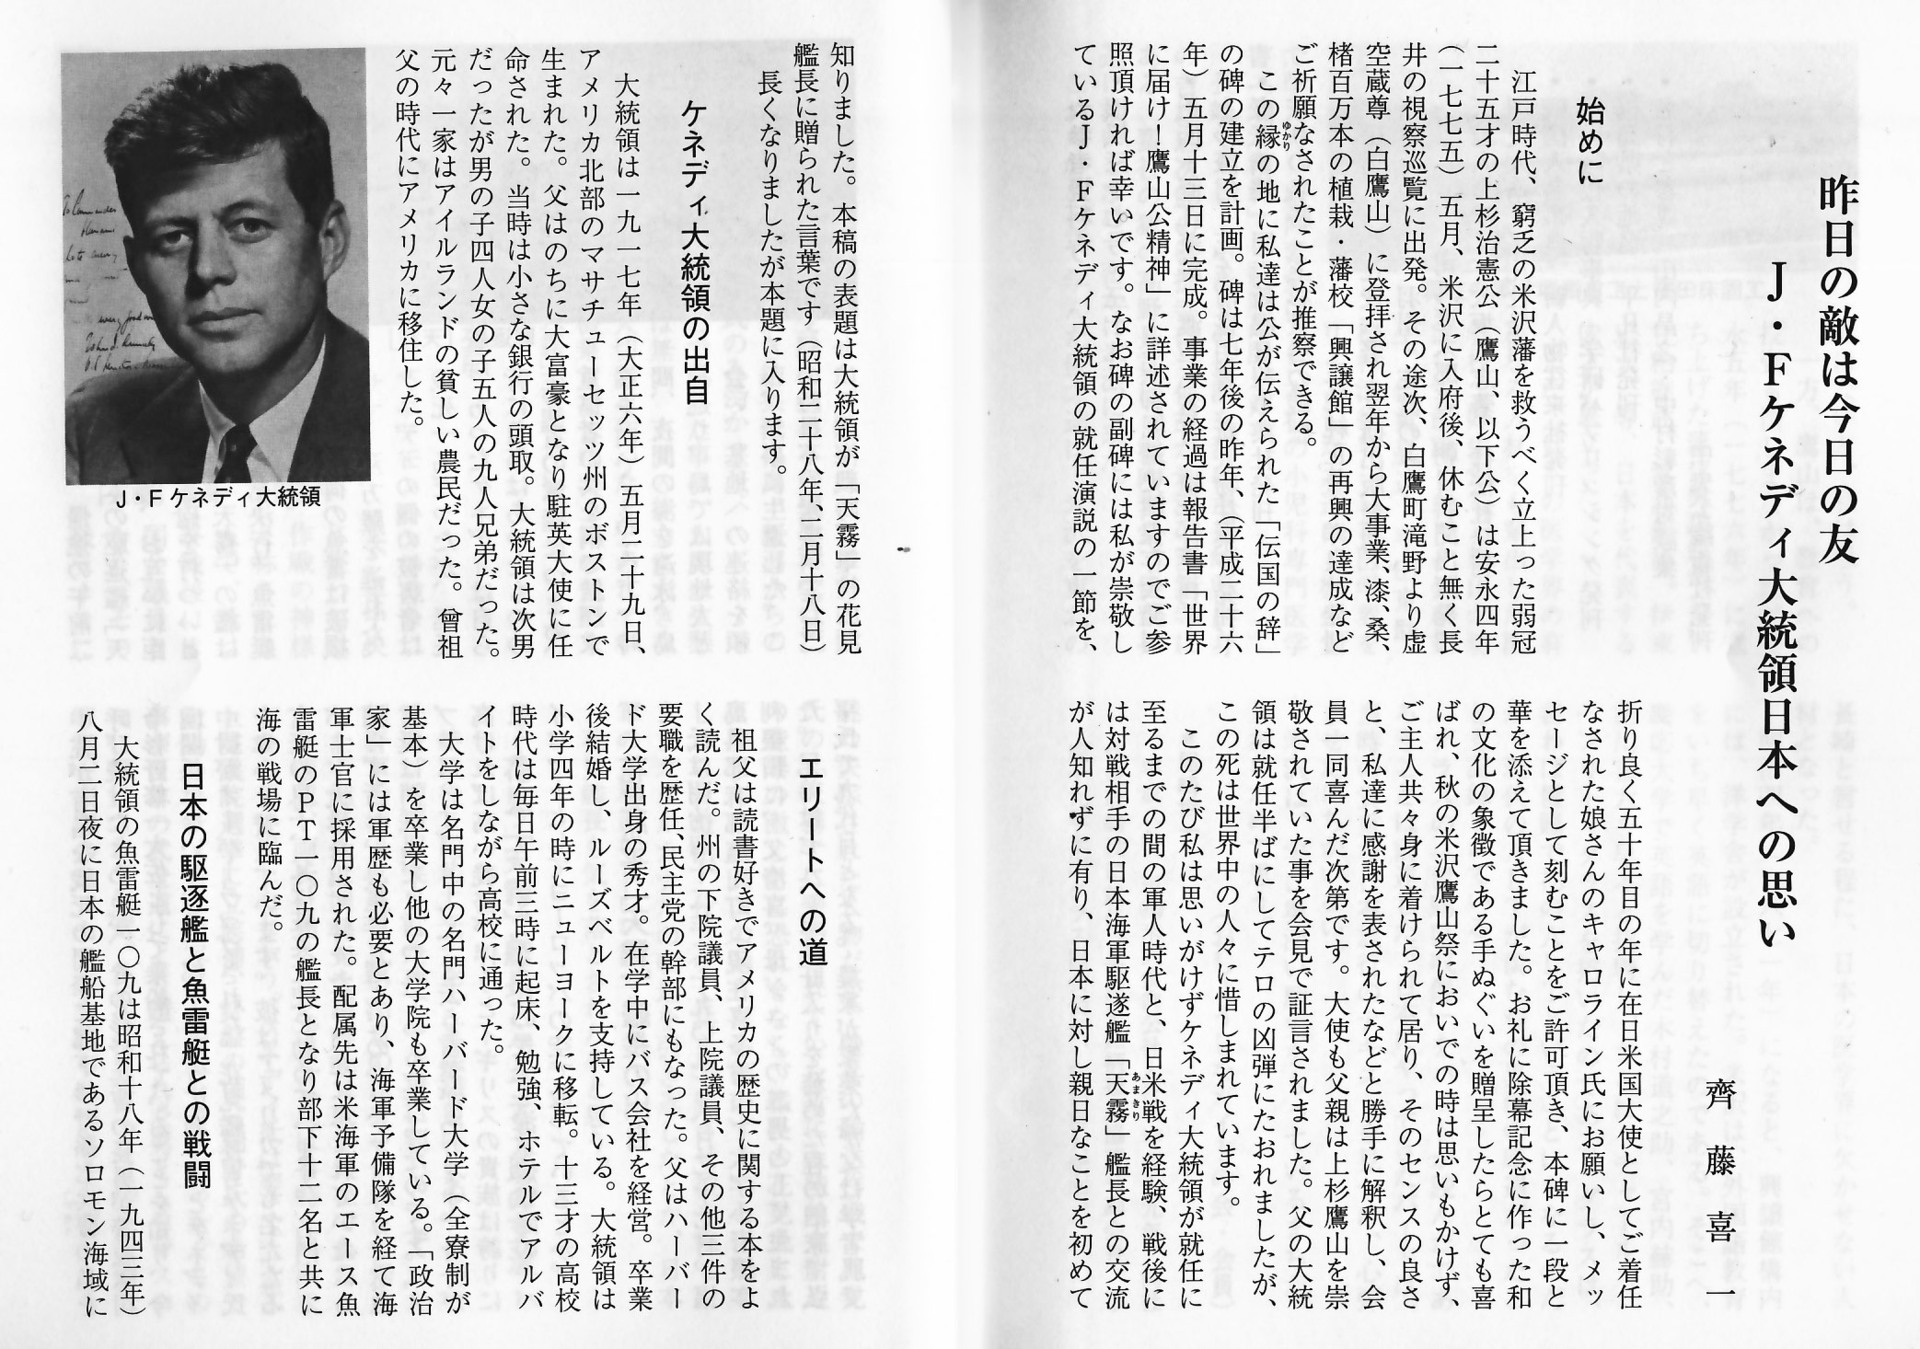 昨日の敵は今日の友
J・Fケネディ大統領日本への思い
齊藤喜一
始めに
江戸時代、窮乏の米沢藩を救うべく立上った弱冠
二十五才の上杉治憲公（鷹山、以下公）は安永四年
（一七七五）五月、米沢に入府後、休むこと無く長
井の視察巡覧に出発。その途次、白鷹町滝野より虚
空蔵尊（白鷹山）に登拝され翌年から大事業、漆、桑、
楮百万本の植栽・藩校「興譲館」の再興の達成など
ご祈願なされたことが推察できる。
この縁の地に私達は公が伝えられた「伝国の辞」
ゆかり
の碑の建立を計画。碑は七年後の昨年、（平成二十六
年）五月十三日に完成。事業の経過は報告書「世界
に届け！鷹山公精神」に詳述されていますのでご参
照頂ければ幸いです。なお碑の副碑には私が崇敬し
ているJ・Fケネディ大統領の就任演説の一節を、
折り良く五十年目の年に在日米国大使としてご着任
なされた娘さんのキャロライン氏にお願いし、メッ
セージとして刻むことをご許可頂き、本碑に一段と
華を添えて頂きました。お礼に除幕記念に作った和
の文化の象徴である手ぬぐいを贈呈したらとても喜
ばれ、秋の米沢鷹山祭においでの時は思いもかけず、
ご主人共々身に着けられて居り、そのセンスの良さ
と、私達に感謝を表されたなどと勝手に解釈し、会
員一同喜んだ次第です。大使も父親は上杉鷹山を崇
敬されていた事を会見で証言されました。父の大統
領は就任半ばにしてテロの凶弾にたおれましたが、
この死は世界中の人々に惜しまれています。
このたび私は思いがけずケネディ大統領が就任に
至るまでの間の軍人時代と、日米戦を経験、戦後に
は対戦相手の日本海軍駆遂艦「天霧」艦長との交流
あまきり
が人知れずに有り、日本に対し親日なことを初めて
知りました。本稿の表題は大統領が「天霧」の花見
艦長に贈られた言葉です（昭和二十八年、二月十八日）
長くなりましたが本題に入ります。
ケネディ大統領の出自
大統領は一九一七年（大正六年）五月二十九日、
アメリカ北部のマサチューセッツ州のボストンで
生まれた。父はのちに大富豪となり駐英大使に任
命された。当時は小さな銀行の頭取。大統領は次男
だったが男の子四人女の子五人の九人兄弟だった。
元々一家はアイルランドの貧しい農民だった。曾祖
父の時代にアメリカに移住した。
J・Fケネディ大統領
エリートへの道
祖父は読書好きでアメリカの歴史に関する本をよ
く読んだ。州の下院議員、上院議員、その他三件の
要職を歴任、民主党の幹部にもなった。父はハーバー
ド大学出身の秀才。在学中にバス会社を経営。卒業
後結婚し、ルーズベルトを支持している。大統領は
小学四年の時にニューヨークに移転。十三才の高校
時代は毎日午前三時に起床、勉強、ホテルでアルバ
イトをしながら高校に通った。
大学は名門中の名門ハーバード大学（全寮制が
基本）を卒業し他の大学院も卒業している。「政治
家」には軍歴も必要とあり、海軍予備隊を経て海
軍士官に採用された。配属先は米海軍のエース魚
雷艇のPT一〇九の艦長となり部下十二名と共に
海の戦場に臨んだ。
日本の駆逐艦と魚雷艇との戦闘
大統領の魚雷艇一〇九は昭和十八年（一九四三年）
八月一日夜に日本の艦船基地であるソロモン海域に